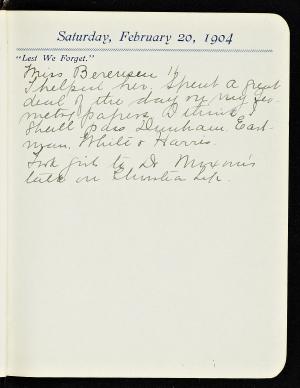 Saturday, February 20, 1904
"Lest We Forget."
Miss Berensen
I helped her. Spent a great
deal of the day on my Geo-
metry papers. I think I
shall pass Dunham, East-
man, White & Harris.
Took girls to Dr. Moxom's
talk on Christian Life.